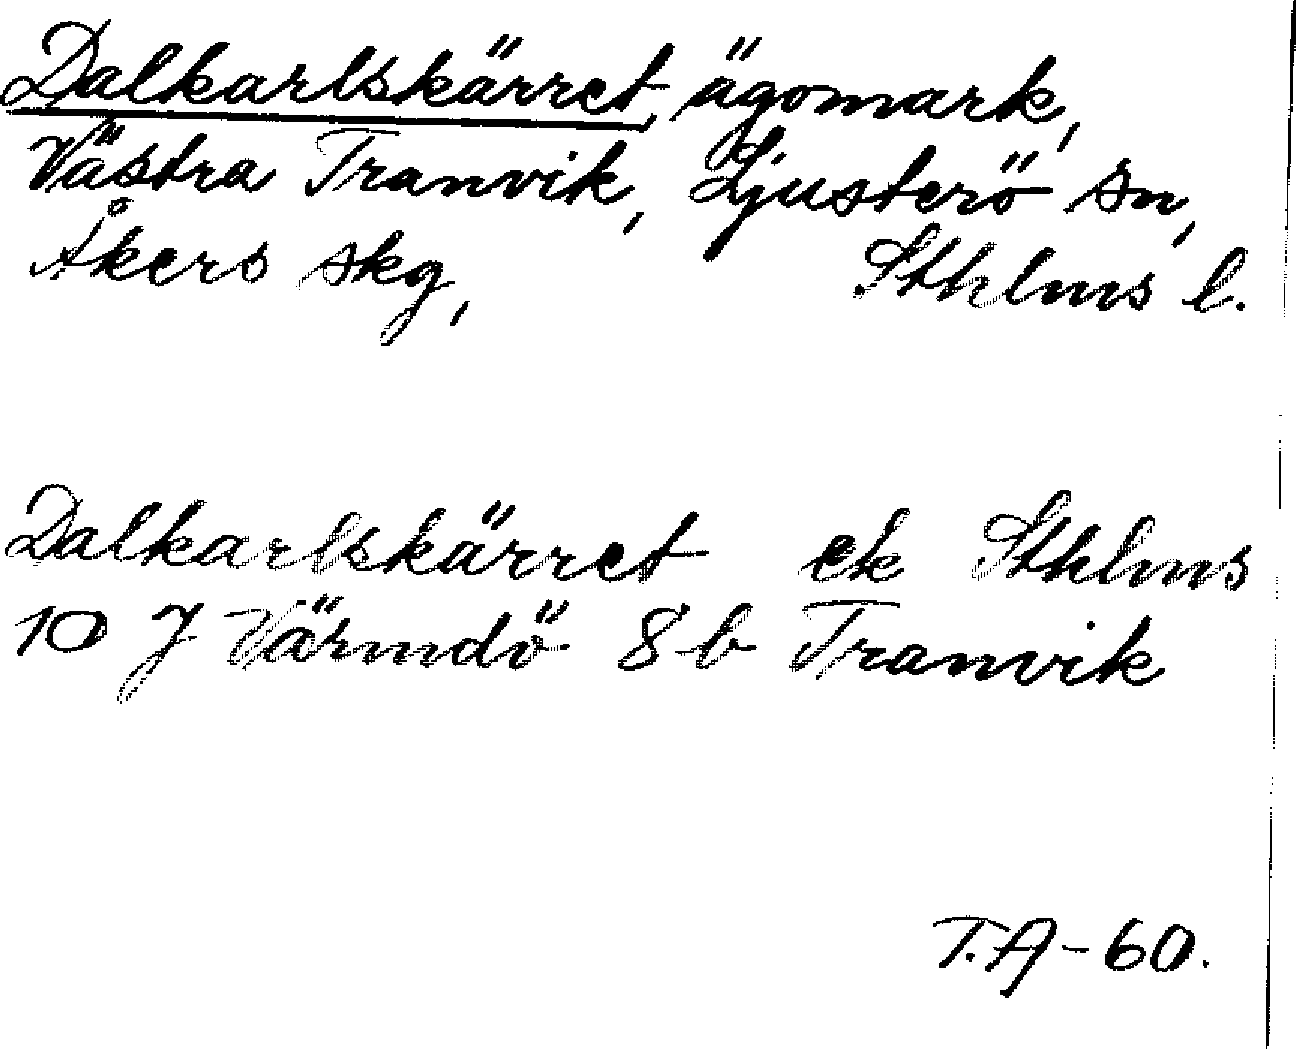 Dalkarlskärret, ägomark,
Västra Tranvik, Ljusterö sn,
Åkers skg, Sthlms l.
Dalkarlskärret ek Sthlms
10 J Värmdö 8b Tranvik
T.A-60.